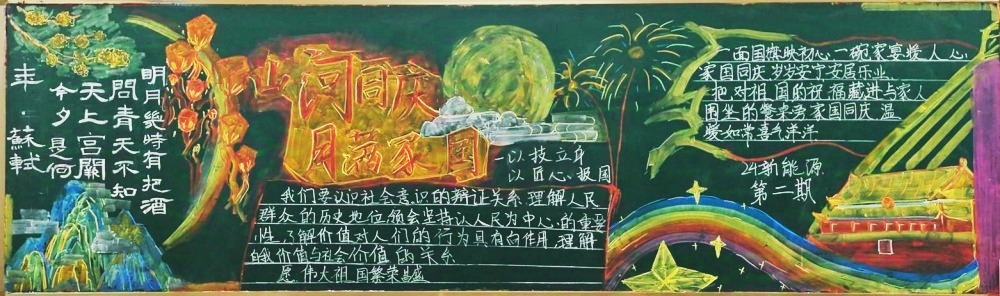 明月幾時有把酒
問青天不知
天上宮闕
今夕是何
年·蘇軾
山河同庆
月满家国
一以技立身
以匠心报国
我们要认识社会意识的辩证关系,理解人民
群众的历史地位,领会坚持以人民为中心的重要
性,了解价值对人们的行为具有向作用,理解
自我价值与社会价值的关系
愿伟大祖国繁荣昌盛
一面国旗映初心,一碗家宴暖人心
家国同庆岁岁安宁安居乐业
把对祖国的祝福藏进与家人
围坐的餐桌旁家国同庆温
暖如常喜气洋洋
24新能源
第二期